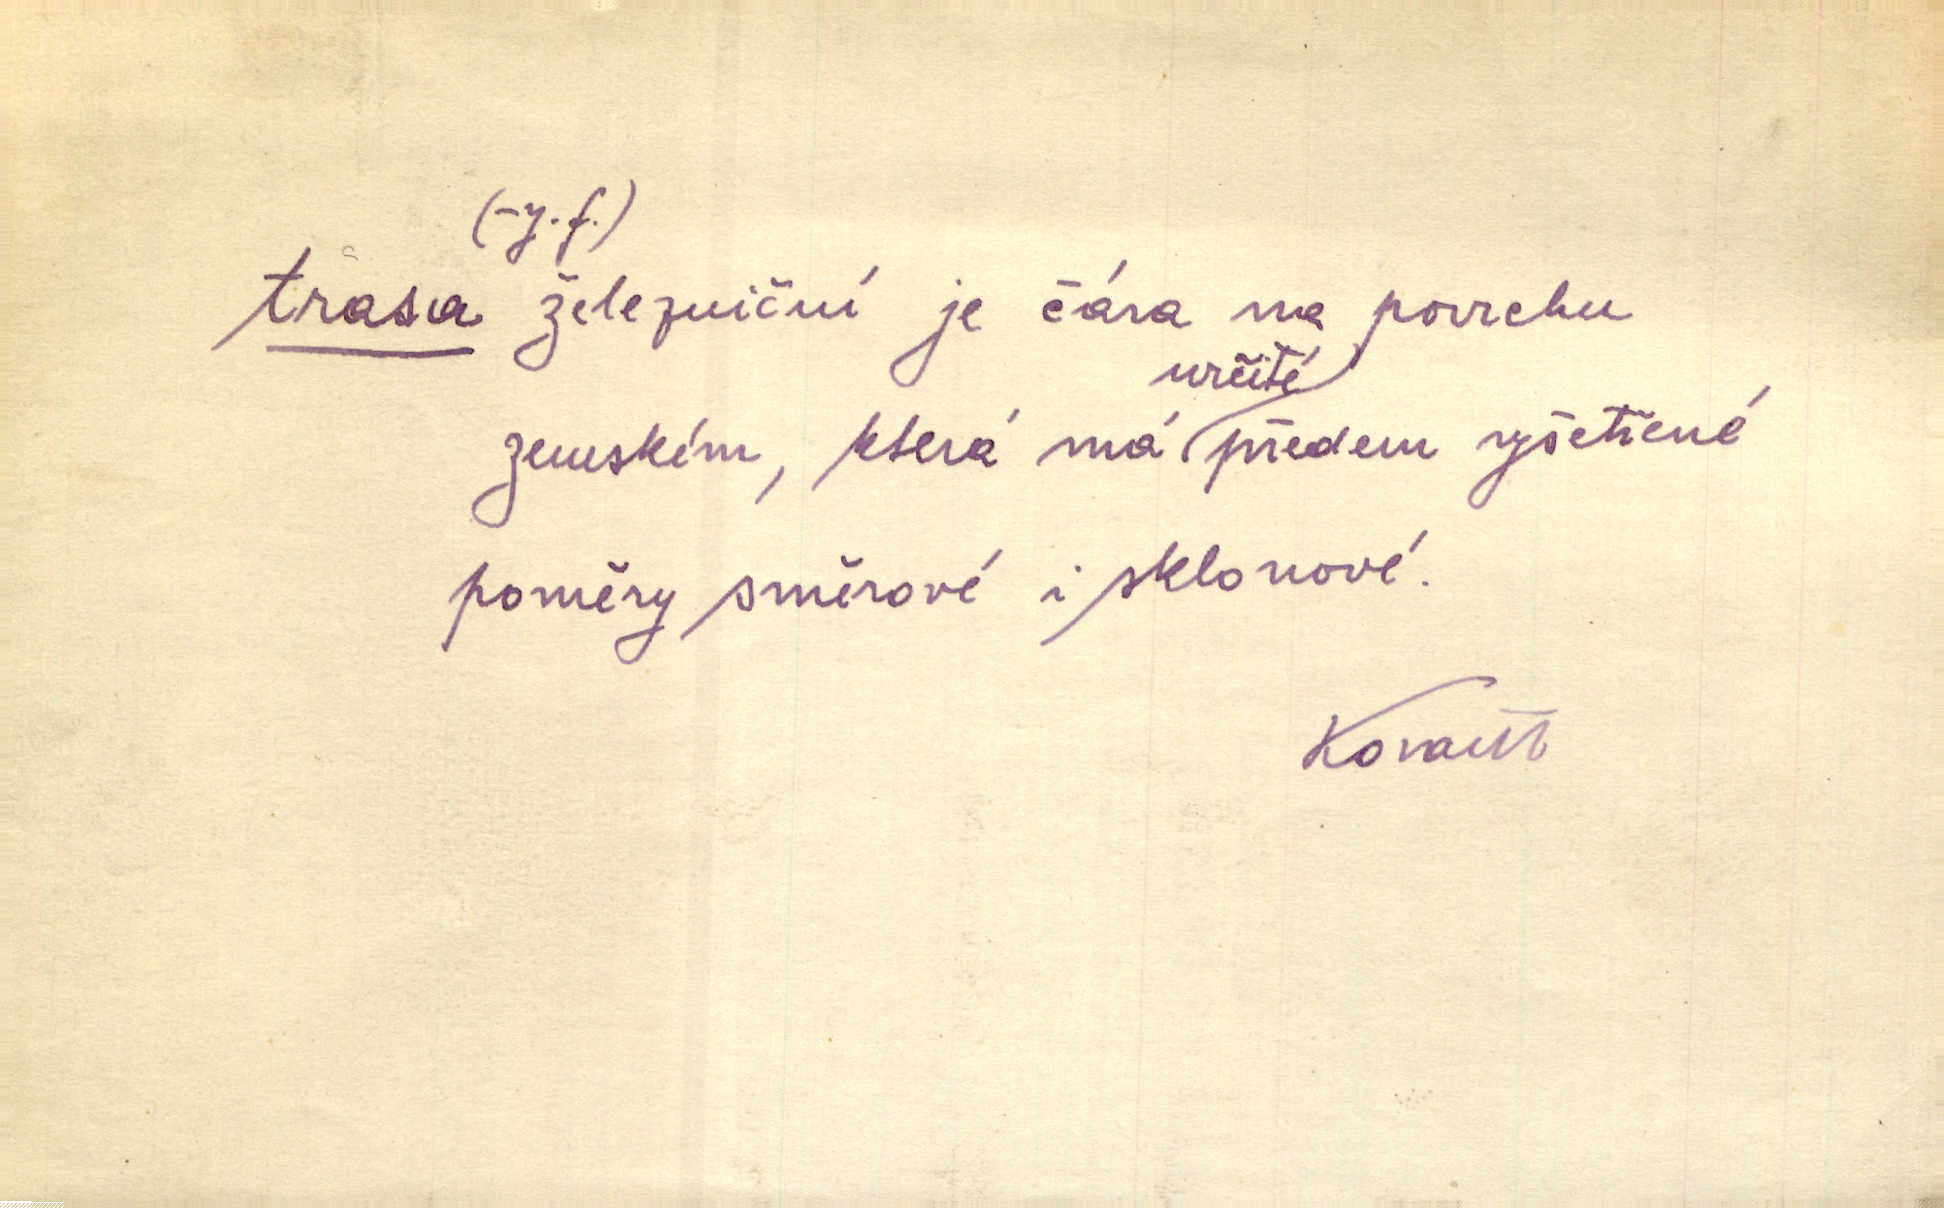 (-y. f.)
trasa železniční je čára na povrchu
určité
zemském, která má předem vyšetřené
poměry směrové i sklonové.